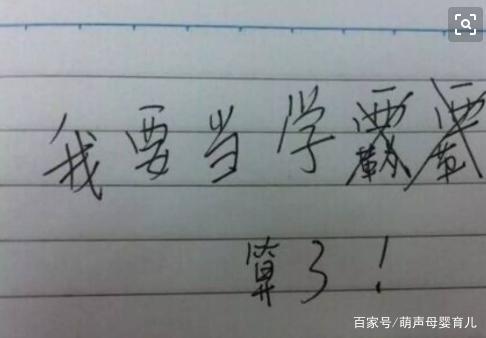 我要当学
算了！
百家号/萌声母婴育儿